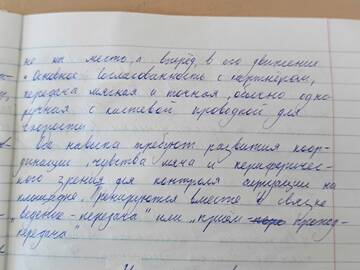 не на место, а вперёд, в его движение
• Основное согласованность с партнёром,
передача мягкая и точная, обычно одно-
ручная с кистевой проводкой для
скорости.
Все навыки требуют развития коор-
динации, чувства мяча и периферичес-
кого зрения для контроля ситуации на
площадке. Тренируются вместе в связке
"ведение - передача" или "приём - проход -
передача"